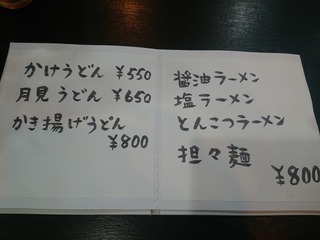 かけうどん ¥550
月見うどん ¥650
かき揚げうどん
¥800
醤油ラーメン
塩ラーメン
とんこつラーメン
担々麺
¥800